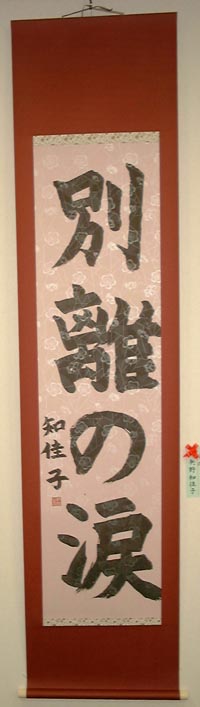 別離の涙
知佳子
矢野知佳子